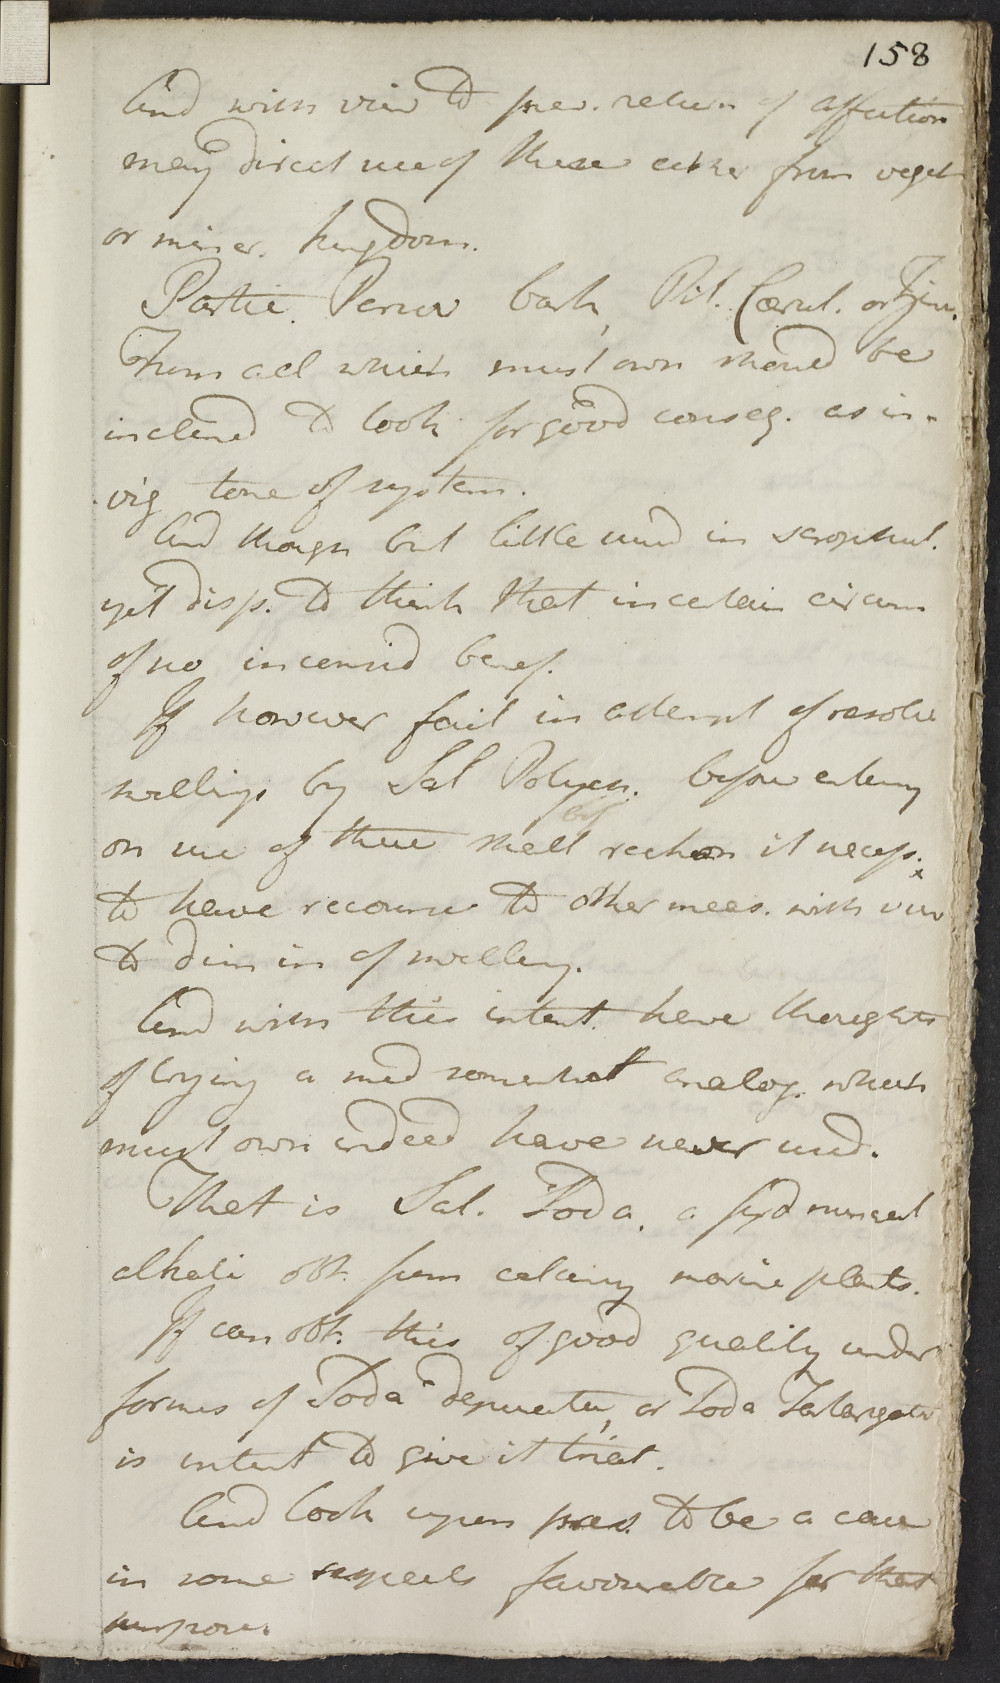 158
And with view to prev. return of affection
may direct use of these either from veget
or miner. kingdom.
Partic. Peruv bark, Pil. Cœrul. or
From all which must own should be
inclined to look for good conseq. as in-
vig tone of system.
And though but little used in scrophul.
yet disp. to think that in certain circum
of no inconsid benef.
If however fail in attempt of resolv
swellings by Sal Polych. before entering
on use of these shall reckon it necess.
to have recourse to other meas. with view
to dimin of swelling.
And with this intent. have thoughts
of trying a med somewhat analog. which
must own indeed have never used.
That is Sal. Soda. a fix'd mineral
alkali obt. from calcining marine plants.
If can obt. this of good quality under
forms of Soda depurata, or Soda Tartarisata
is intent to give it trial.
And look upon pres. to be a case
in some respects favourable for that
purpose.